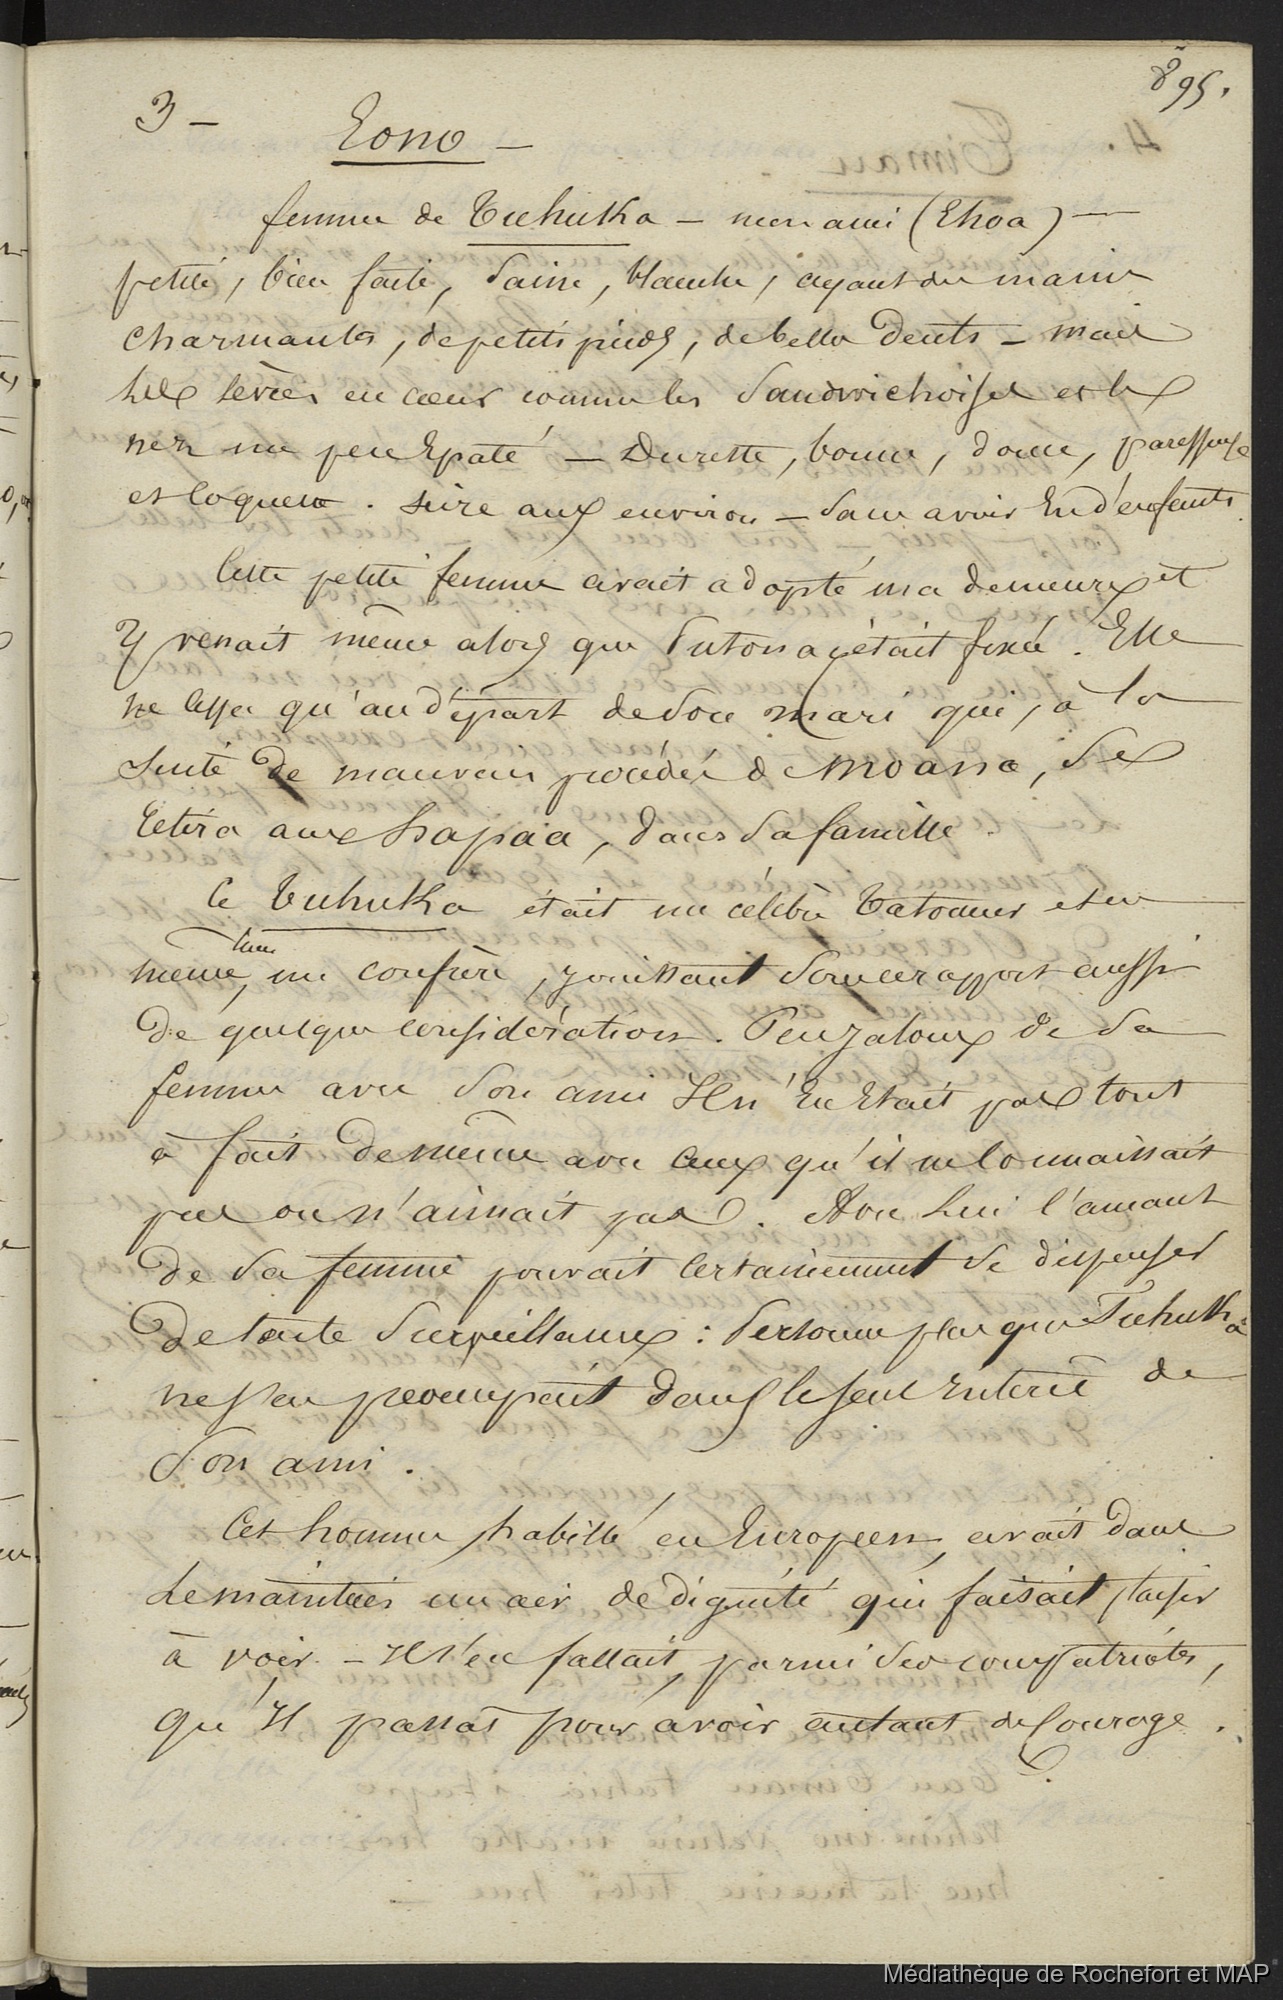 895.
3 — Eono —
femme de Tuhuka — mon ami (Ehoa) —
petite, bien faite, saine, blanche, ayant des mains
charmantes, de petits pieds, de belles dents — mais
les lèvres en cœur comme les Sandwichoises et le
nez un peu épaté — Durette, bonne, douce, paresseuse
et coquette. aux environs — sans avoir eu d'enfants.
Cette petite femme avait adopté ma demeure et
y venait même alors que Putona y était fixée. Elle
ne cessa qu'au départ de son mari qui, à la
suite de mauvais procédés de Moana, se
retira aux hapaa, dans sa famille.
Ce Tuhuka était un célèbre tatoueur et en
même tems, un confrère, jouissant sous ce rapport aussi
de quelque considération. Peu jaloux de sa
femme avec son ami Il n'en était pas tout
à fait de même avec ceux qu'il ne connaissait
pas ou n'aimait pas. Avec lui l'amant
de sa femme pouvait certainement se dispenser
de toute surveillance : Personne plus que Tuhuka
ne s'en préoccupait dans le seul intérêt de
son ami.
Cet homme, habillé en Européen, avait dans
le maintien un air de dignité qui faisait plaisir
à voir — Il s'en fallait, parmi ses compatriotes,
qu'il passât pour avoir autant de Courage.
Médiathèque de Rochefort et MAP